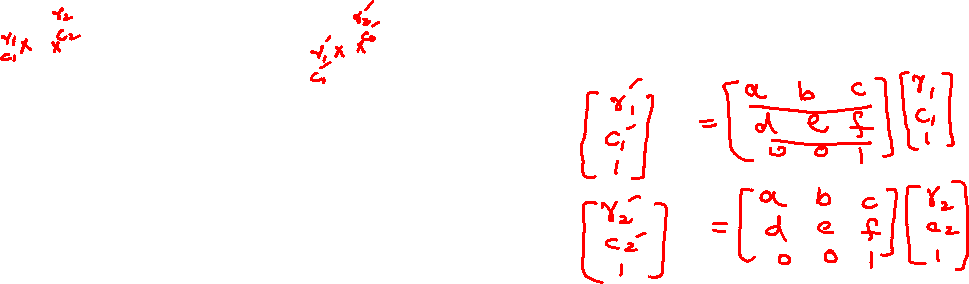 r₂ r₂′
r₁ x x c₂ r₁′ x x c₂′
c₁ c₁′
[r₁′ c₁′ 1] = [a b c; d e f; 0 0 1] [r₁ c₁ 1]
[r₂′ c₂′ 1] = [a b c; d e f; 0 0 1] [r₂ c₂ 1]